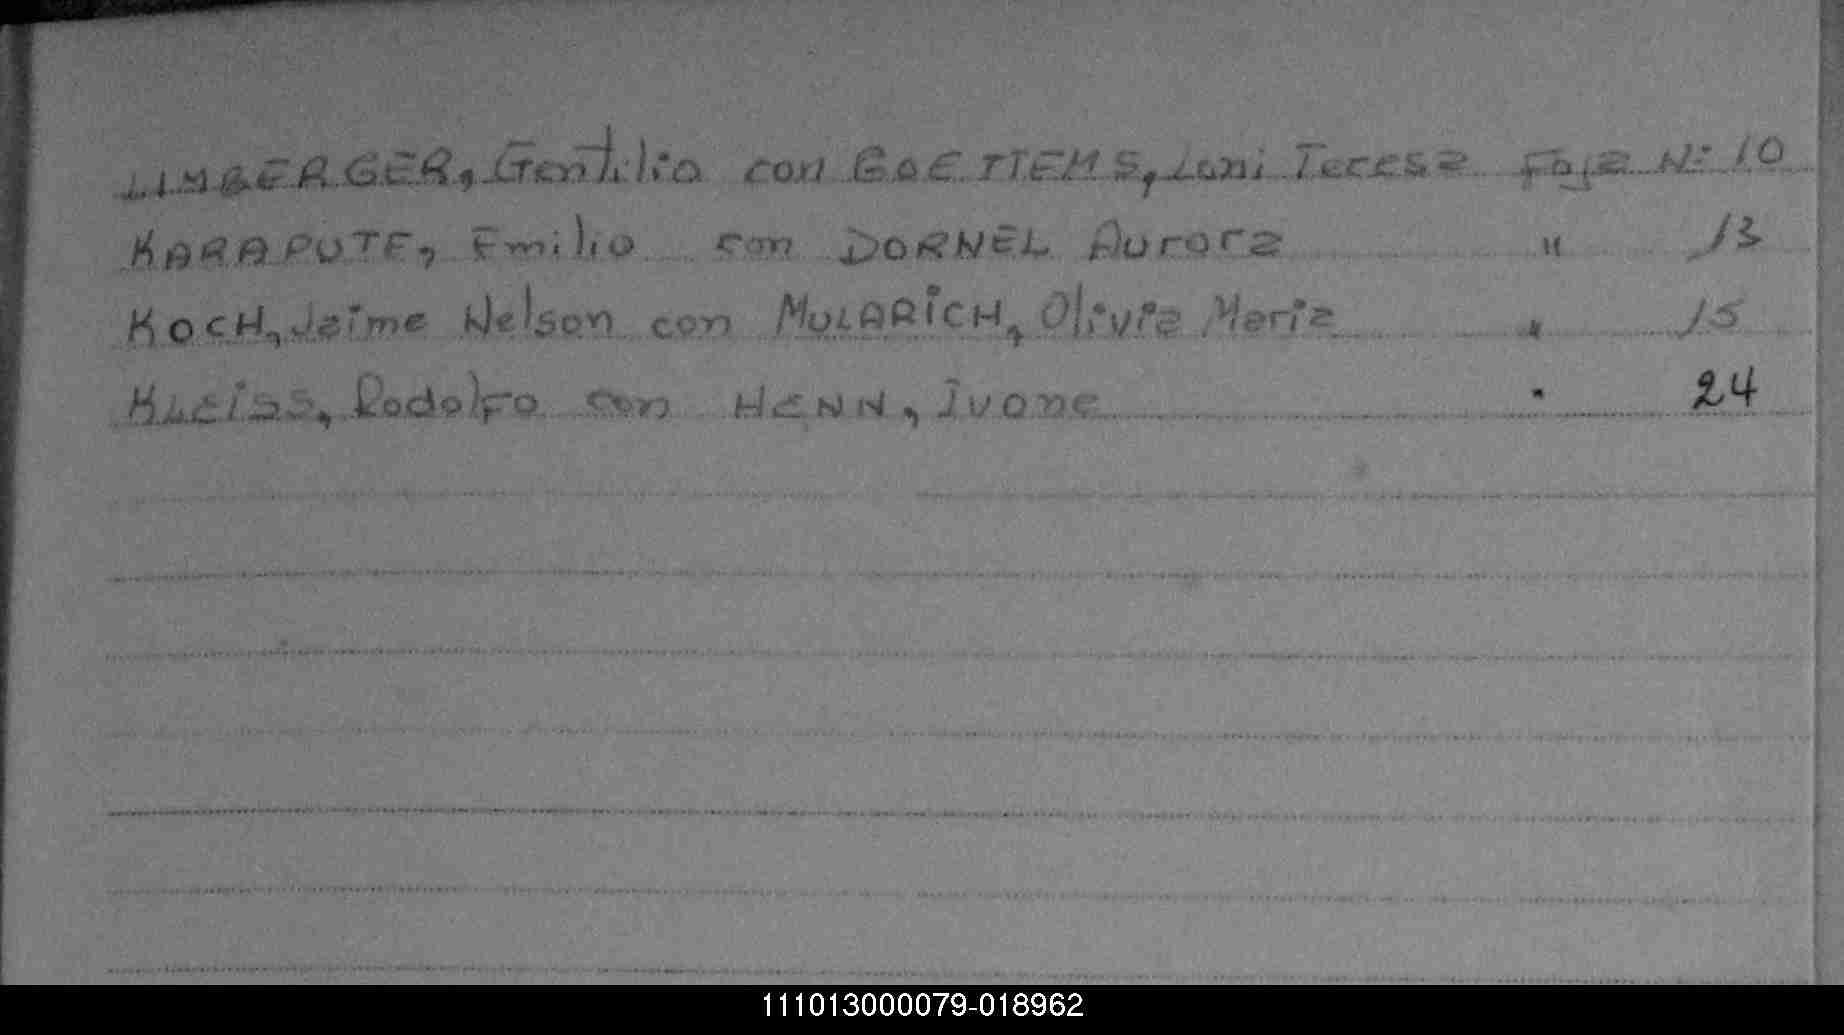 LIMBERGER, Gentilio con GOETTEMS, Loni Teresa Foja Nº 10
KARAPUTE, Emilio con DORNEL Aurora " 13
KOCH, Jaime Nelson con MULARICH, Olivia Maria " 15
KLEISS, Rodolfo con HENN, Ivone " 24
111013000079-018962